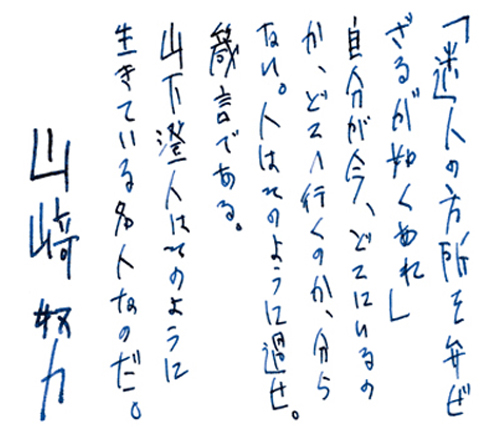 「迷人の方所を弁ぜ
ざるが如くあれ」
自分が今、どこにいるの
か、どこへ行くのか、分ら
ない。人はそのように過せ。
箴言である。
山下澄人はそのように
生きている名人なのだ。
山﨑努